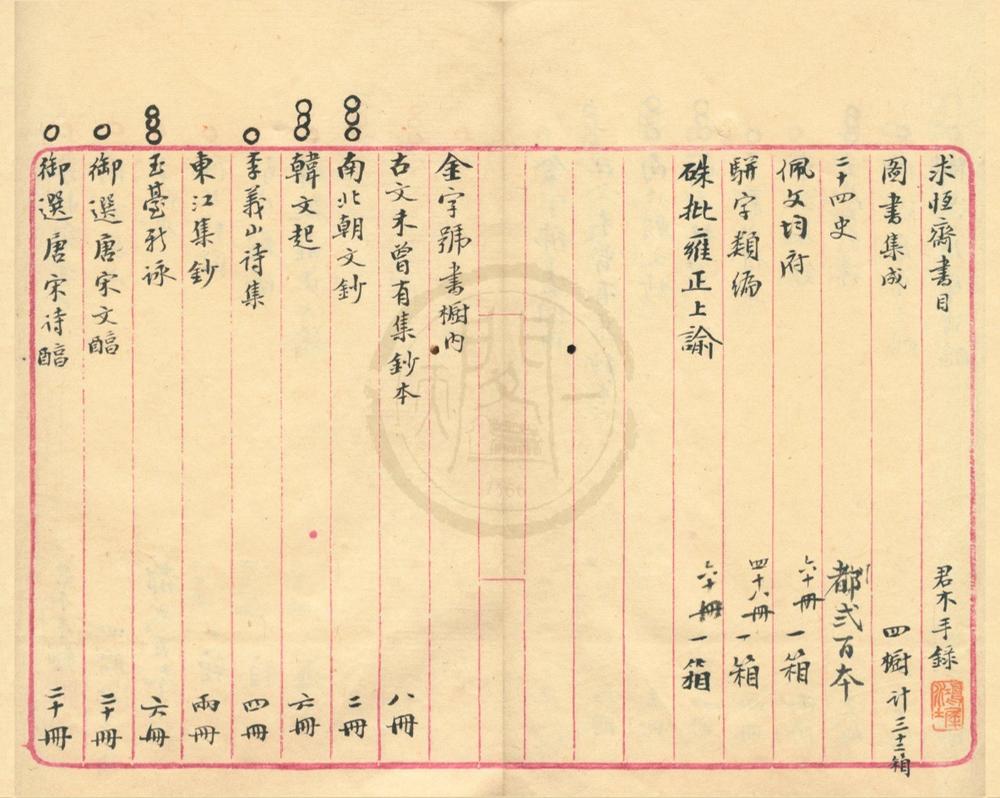 求恆齋書目 君木手錄
圖書集成 四櫥計三十二箱
二十四史 都弍百本
佩文均府 六十冊一箱
駢字類編 四十八冊一箱
硃批雍正上諭 六十冊一箱
金字號書櫥內
古文未曾有集鈔本 八冊
南北朝文鈔 二冊
韓文起 六冊
李義山詩集 四冊
東江集鈔 兩冊
玉臺新詠 六冊
御選唐宋文醕 二十冊
御選唐宋詩醕 二十冊